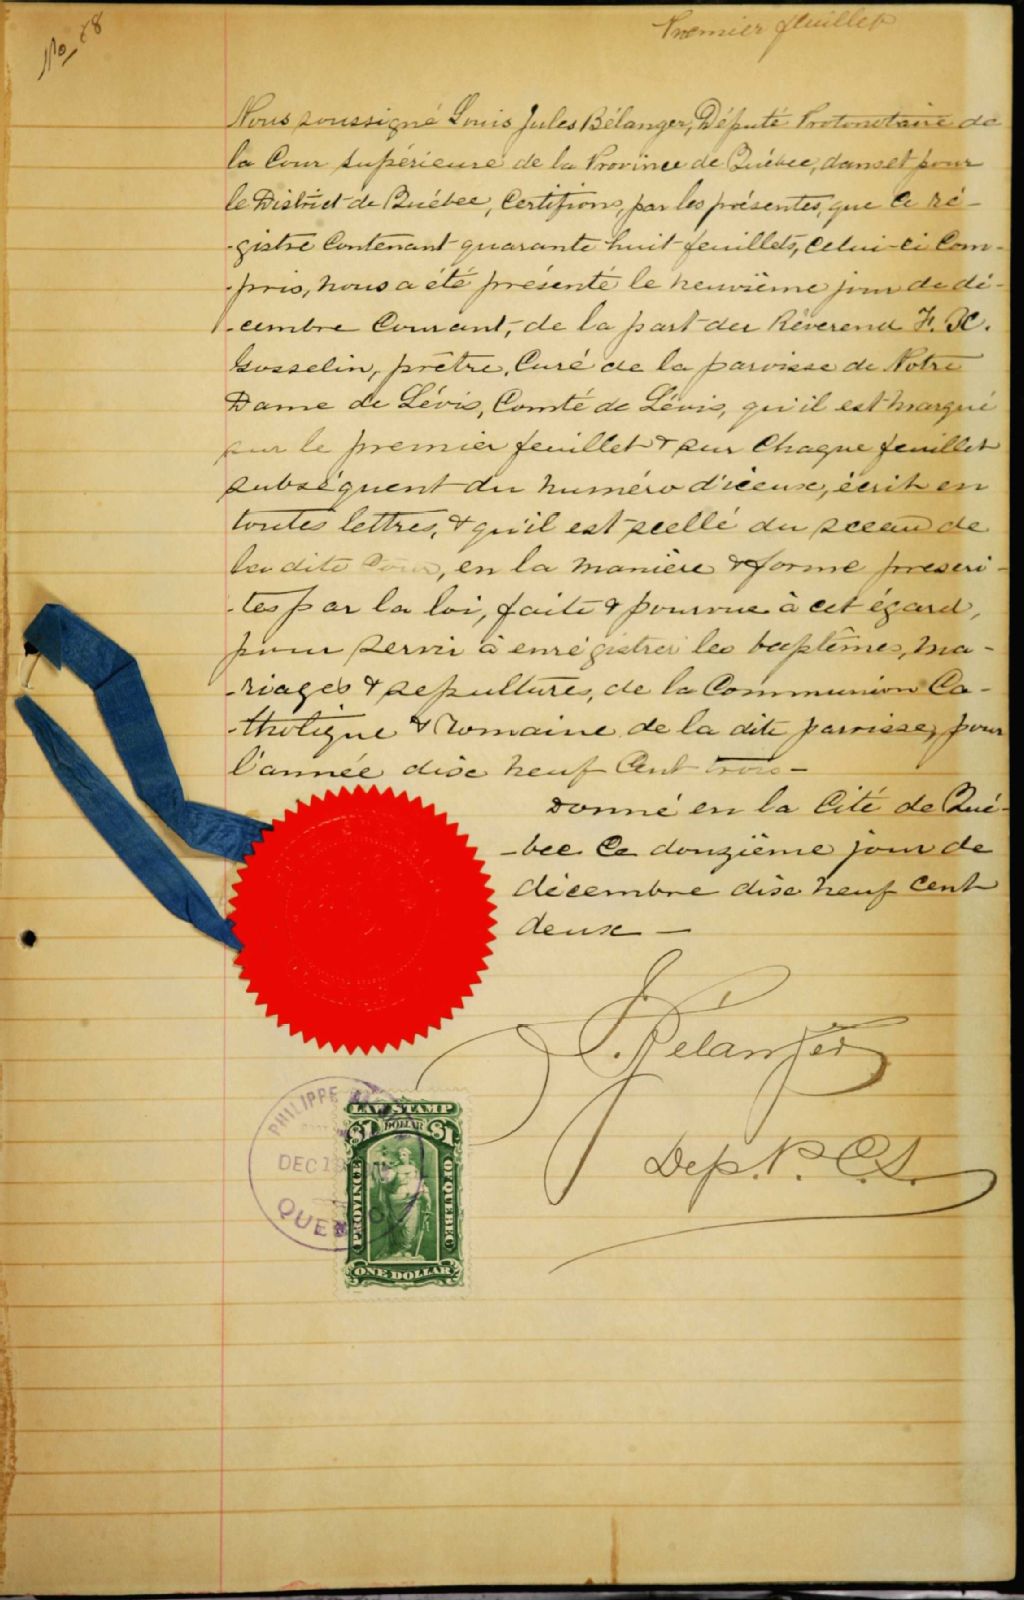 No 88
Premier feuillet
Nous soussigné Louis Jules Bélanger, Député Protonotaire de
la Cour Supérieure de la Province de Québec, dans et pour
le District de Québec, Certifions, par les présentes, que Ce ré-
-gistre Contenant quarante huit feuillets, celui-ci Com-
-pris, nous a été présenté le neuvième jour de dé-
-cembre Courant, de la part du Révérend F. X.
Gosselin, prêtre, Curé de la paroisse de Notre
Dame de Lévis, Comté de Lévis, qu'il est marqué
sur le premier feuillet & sur Chaque feuillet
subséquent du numéro d'iceux, écrit en
toutes lettres, & qu'il est scellé du sceau de
la dite Cour, en la manière & forme prescri-
-tes par la loi, faite & pourvue à cet égard,
pour servir à enrégistrer les baptêmes, ma-
-riages & sépultures, de la Communion Ca-
-tholique & Romaine de la dite paroisse, pour
l'année dix neuf Cent trois -
Donné en la Cité de Qué-
-bec Ce douzième jour de
décembre dix neuf Cent
deux -
J. Bélanger
Dep. P. C. S.
PHILIPPE
DEC 19
QUEBEC
LAW STAMP
$1 DOLLAR $1
PROVINCE
OF QUEBEC
ONE DOLLAR